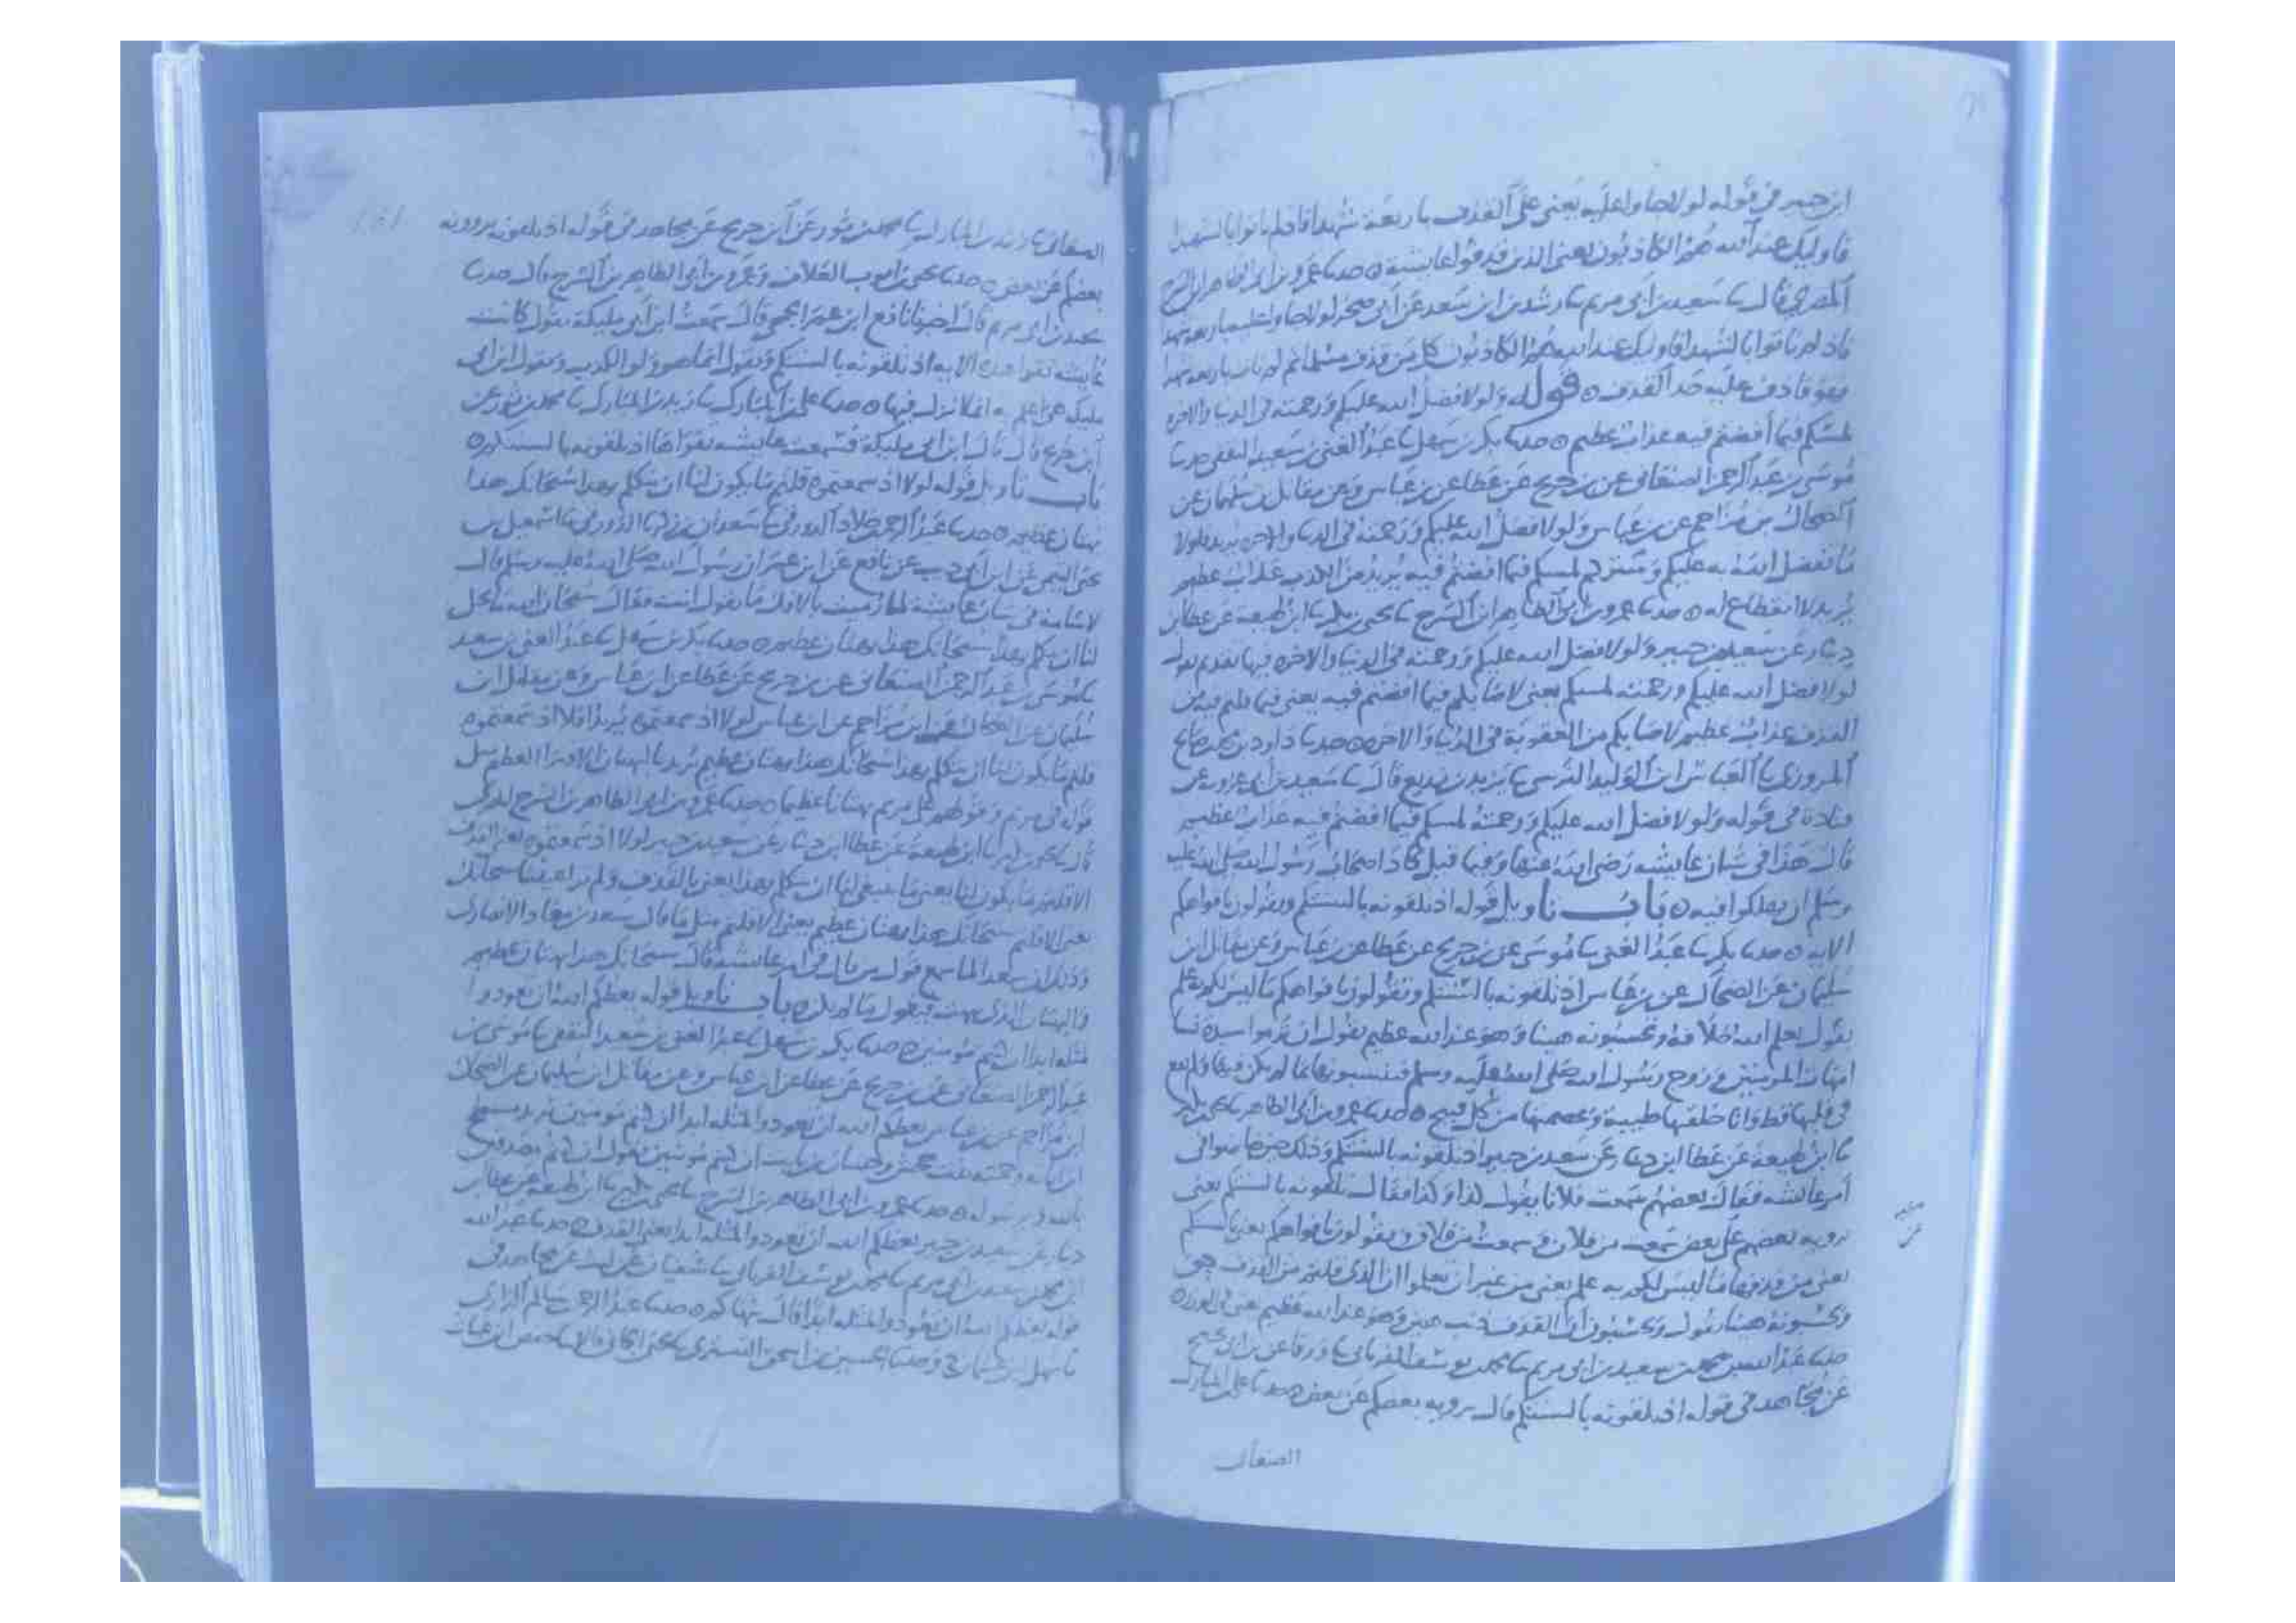 ابن جبير في قوله لولا جاوا عليه يعني على القذف باربعة شهدا فاذ لم ياتوا بالشهدا
فاوليك عند الله هم الكاذبون يعني الذين قذفوا عايشة حدثنا عمرو بن ابي الطاهر ابن السرح
المصري قال نا سعيد بن ابي مريم نا رشدين ابن سعد عن ابي صخر لولا جاوا عليه باربعة شهدا
فاذ لم ياتوا بالشهدا فاوليك عند الله هم الكاذبون كل من قذف مسلما ثم لم يات باربعة شهدا
فهو قاذف عليه حد القذف قوله ولولا فضل الله عليكم ورحمته في الدنيا والاخرة
لمسكم فيما افضتم فيه عذاب عظيم حدثنا بكر بن سهل نا عبد الغني بن سعيد الثقفي حدثنا
موسى بن عبد الرحمن الصنعاني عن بن جريج عن عطا عن بن عباس وعن مقاتل بن سليمان عن
الضحاك بن مزاحم عن بن عباس ولولا فضل الله عليكم ورحمته في الدنيا والاخرة يريد فلولا
ما تفضل الله به عليكم لمسكم فيما افضتم فيه يريد من الكذب عذاب عظيم
يريد لا انقطاع له حدثنا عمرو بن ابي الطاهر ابن السرح نا يحيى بن بكير نا ابن لهيعة عن عطا بن
دينار عن سعيد بن جبير ولولا فضل الله عليكم ورحمته في الدنيا والاخرة فيها تقديم يقول
لولا فضل الله عليكم ورحمته لمسكم يعني لاصابكم فيما افضتم فيه يعني فيما قلتم فيه من
القذف عذاب عظيم لاصابكم من العقوبة في الدنيا والاخرة حدثنا داود بن محمد بن صالح
المروزي نا العباس ابن الوليد النرسي نا يزيد بن زريع قال نا سعيد بن ابي عروبة عن
قتادة في قوله ولولا فضل الله عليكم ورحمته لمسكم فيما افضتم فيه عذاب عظيم
قال هذا في شان عايشة رضي الله عنها وفيما قيل كاد اصحاب رسول الله صلى الله عليه
وسلم ان يهلكوا فيه باب تاويل قوله اذ تلقونه بالسنتكم ويقولون بافواهكم
الاية حدثنا بكر نا عبد الغني نا موسى عن بن جريج عن عطا عن بن عباس وعن مقاتل ابن
سليمان عن الضحاك عن بن عباس اذ تلقونه بالسنتكم وتقولون بافواهكم ما ليس لكم به علم
يقول يعلم الله خلافه وتحسبونه هينا وهو عند الله عظيم يقول ان ترموا سيدة نسا
امهات المومنين وزوج رسول الله صلى الله عليه وسلم فتنسبونها بما لم يكن فيها ولم يقع
في قلبها قط وانا خلقتها طيبة وعصمتها من كل قبيح حدثنا عمرو بن ابي الطاهر نا يحيى بن بكير
نا ابن لهيعة عن عطا ابن دينار عن سعيد بن جبير اذ تلقونه بالسنتكم وذلك حين خاضوا في
امر عايشة فقال بعضهم سمعت فلانا يقول كذا وكذا فقال تلقونه بالسنتكم يعني
يرويه بعضهم على بعض سمعت من فلان وسمعت من فلان ويقولون بافواهكم يعني بالسنتكم
يعني من قذفها ما ليس لكم به علم يعني من غير ان تعلموا ان الذي قلتم من القذف حق
وتحسبونه هينا يقول وتحسبون ان القذف ذنب هين وهو عند الله عظيم يعني في الوزر
حدثنا عبد الله بن محمد بن سعيد بن ابي مريم نا محمد بن يوسف الفريابي نا ورقا عن بن ابي نجيح
عن مجاهد في قوله اذ تلقونه بالسنتكم قال يرويه بعضكم عن بعض حدثنا علي بن المبارك
الصنعاني
الصنعاني نا زيد بن المبارك نا محمد بن ثور عن ابن جريج عن مجاهد في قوله اذ تلقونه يروونه
بعضكم عن بعض حدثنا يحيى بن ايوب العلاف وعمرو بن ابي الطاهر بن السرح قال حدثنا
سعيد بن ابي مريم قال اخبرنا نافع ابن عمر الجمحي قال سمعت ابن ابي مليكة يقول كانت
عايشة تقرا هذه الاية اذ تلقونه بالسنتكم وتقول انما هو ولق الكذب ويقول ابن ابي
مليكة هي اعلم به انما نزل فيها حدثنا علي بن المبارك نا زيد بن المبارك نا محمد بن ثور عن
ابن جريج قال قال ابن ابي مليكة فسمعت عايشة تقراها اذ تلقونه بالسنتكم
باب تاويل قوله لولا اذ سمعتموه قلتم ما يكون لنا ان نتكلم بهذا سبحانك هذا
بهتان عظيم حدثنا عبد الرحمن خلاد الدورقي نا سعدان بن زكريا الدورقي نا اسمعيل بن
يحيى التيمي عن ابن ابي ذيب عن نافع عن ابن عمر ان رسول الله صلى الله عليه وسلم قال
لاسامة في شان عايشة لما رميت بالافك ما تقول انت فقال سبحان الله ما يحل
لنا ان نتكلم بهذا سبحانك هذا بهتان عظيم حدثنا بكر بن سهل نا عبد الغني بن سعيد
نا موسى بن عبد الرحمن الصنعاني عن بن جريج عن عطا عن ابن عباس وعن مقاتل ابن
سليمان عن الضحاك ابن مزاحم عن ابن عباس لولا اذ سمعتموه يريد افلا اذ سمعتموه
قلتم ما يكون لنا ان نتكلم بهذا سبحانك هذا بهتان عظيم يريد بالبهتان الافترا العظيم مثل
قوله في مريم وقولهم على مريم بهتانا عظيما حدثنا عمرو بن ابي الطاهر بن السرح
قال نا يحيى بن بكير نا ابن لهيعة عن عطا ابن دينار عن سعيد بن جبير لولا اذ سمعتموه يعني القذف
الا قلتم ما يكون لنا يعني ما ينبغي لنا ان نتكلم بهذا يعني بالقذف ولم تره اعيننا سبحانك
يعني الا قلتم سبحانك هذا بهتان عظيم يعني الا قلتم مثل ما قال سعد بن معاذ الانصاري
وذلك ان سعدا لما سمع قول من قال في امر عايشة قال سبحانك هذا بهتان عظيم
والبهتان الذي يبهت فيقول ما لم يكن باب تاويل قوله يعظكم الله ان تعودوا
لمثله ابدا ان كنتم مومنين حدثنا بكر بن سهل نا عبد الغني بن سعيد الثقفي نا موسى بن
عبد الرحمن الصنعاني عن بن جريج عن عطا عن ابن عباس وعن مقاتل ابن سليمان عن الضحاك
ابن مزاحم عن بن عباس يعظكم الله ان تعودوا لمثله ابدا ان كنتم مومنين يريد مسطح
ابن اثاثة وحمنة بنت جحش وحسان بن ثابت ان كنتم مومنين يقول ان كنتم مصدقين
بالله وبرسوله حدثنا عمرو بن ابي الطاهر بن السرح نا يحيى بن بكير نا ابن لهيعة عن عطا بن
دينار عن سعيد بن جبير يعظكم الله ان تعودوا لمثله ابدا يعني القذف حدثنا عبد الله
ابن محمد بن سعيد بن ابي مريم نا محمد بن يوسف الفريابي نا سفيان عن ليث عن مجاهد في
قوله يعظكم الله ان تعودوا لمثله ابدا قال ينهاكم حدثنا عبد الرحمن بن سالم الرازي
نا سهل بن عثمان ح وحدثنا الحسين بن اسحق التستري نا يحيى الحماني قالا نا حفص ابن غياث